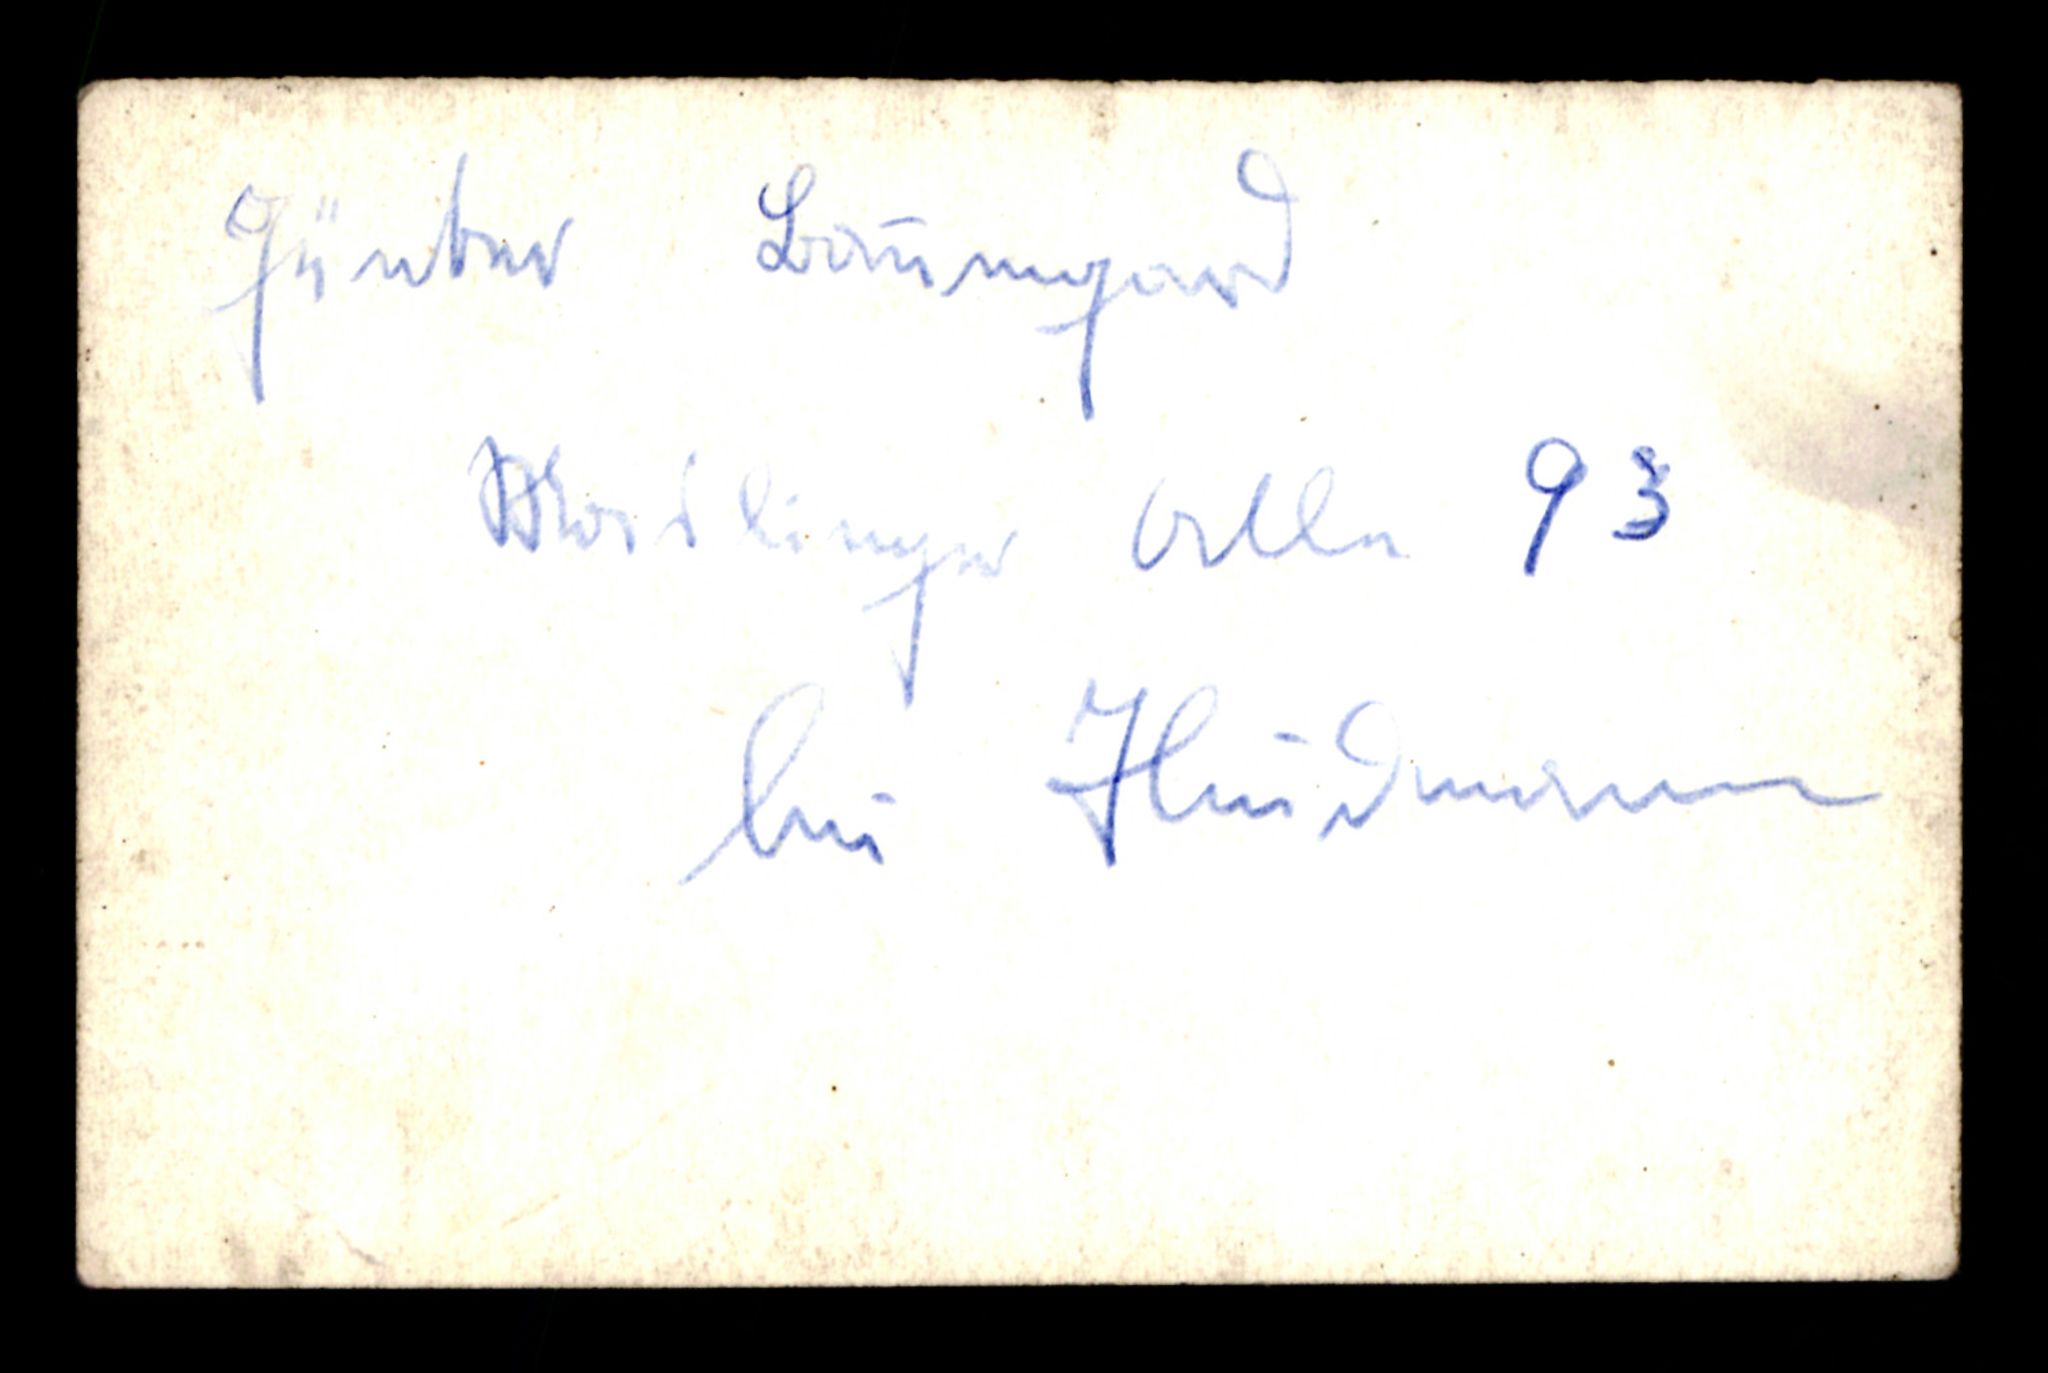 Günter Baumgard
Waidlinger Allee 93
bei Heidmann